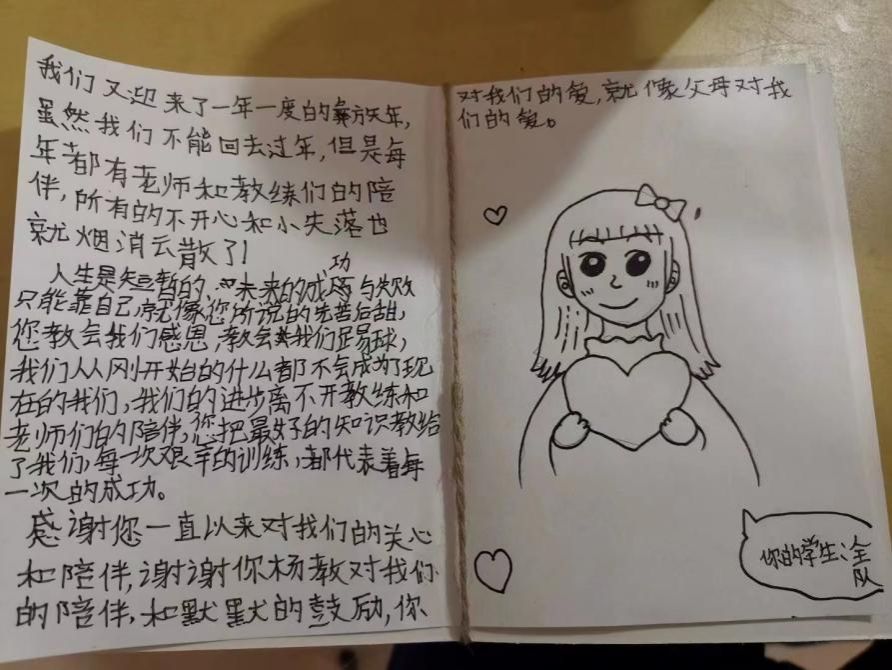 我们又迎来了一年一度的彝族年,
虽然我们不能回去过年,但是每
年都有老师和教练们的陪
伴,所有的不开心和小失落也
就烟消云散了!
人生是短暂的,未来的成功与失败
只能靠自己,就像您所说的先苦后甜,
您教会我们感恩,教会我们踢球,
我们从刚开始的什么都不会成为了现
在的我们,我们的进步离不开教练和
老师们的陪伴,您把最好的知识教给
了我们,每一次艰辛的训练,都代表着每
一次的成功。
感谢您一直以来对我们的关心
和陪伴,谢谢你杨教对我们
的陪伴,和默默的鼓励,你
对我们的爱,就像父母对我
们的爱。
你的学生:全
队